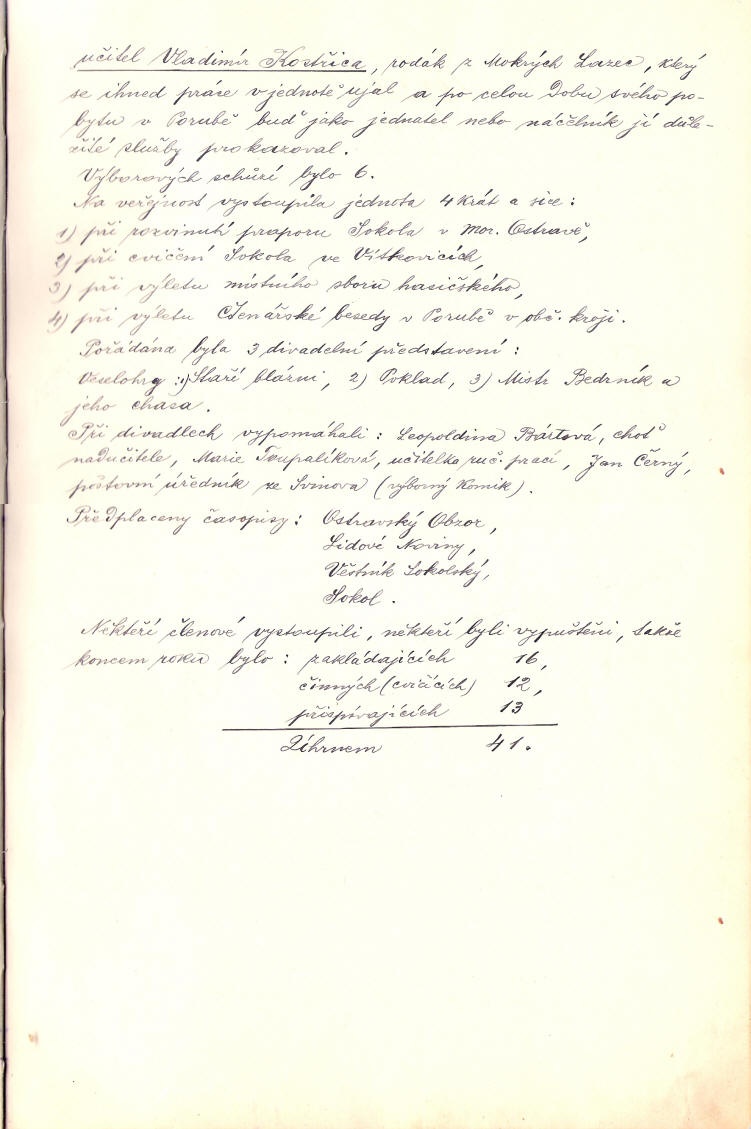 učitel Vladimír Kostřica, rodák z Mokrých Lazec, který
se ihned práce v jednotě ujal a po celou dobu svého po-
bytu v Porubě buď jako jednatel nebo náčelník jí důle-
žité služby prokazoval.
Výborových schůzí bylo 6.
Na veřejnost vystoupila jednota 4 krát a sice:
1) při rozvinutí praporu Sokola v Mor. Ostravě,
2) při cvičení Sokola ve Vítkovicích,
3) při výletu místního sboru hasičského,
4) při výletu Čtenářské besedy v Porubě v obč. kroji.
Pořádána byla 3 divadelní představení:
Veselohry: 1) Staří blázni, 2) Poklad, 3) Mistr Bedrník a
jeho chasa.
Při divadlech vypomáhali: Leopoldina Bártová, choť
nadučitele, Marie Toupalíková, učitelka ruč. prací, Jan Černý,
poštovní úředník ze Svinova (výborný komik).
Předplaceny časopisy: Ostravský Obzor,
Lidové Noviny,
Věstník Sokolský,
Sokol.
Někteří členové vystoupili, někteří byli vypuštěni, takže
koncem roku bylo: zakládajících 16,
činných (cvičících) 12,
přispívajících 13
Úhrnem 41.